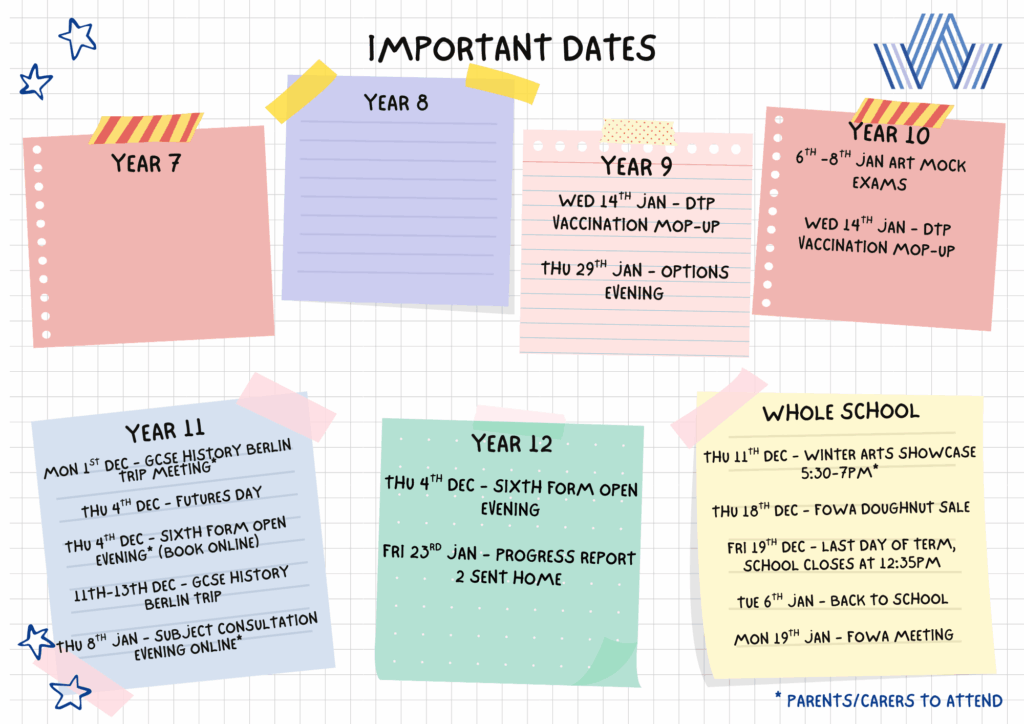 IMPORTANT DATES
YEAR 7
YEAR 8
YEAR 9
WED 14TH JAN - DTP
VACCINATION MOP-UP
THU 29TH JAN - OPTIONS
EVENING
YEAR 10
6TH -8TH JAN ART MOCK
EXAMS
WED 14TH JAN - DTP
VACCINATION MOP-UP
YEAR 11
MON 1ST DEC - GCSE HISTORY BERLIN
TRIP MEETING*
THU 4TH DEC - FUTURES DAY
THU 4TH DEC - SIXTH FORM OPEN
EVENING* (BOOK ONLINE)
11TH-13TH DEC - GCSE HISTORY
BERLIN TRIP
THU 8TH JAN - SUBJECT CONSULTATION
EVENING ONLINE*
YEAR 12
THU 4TH DEC - SIXTH FORM OPEN
EVENING
FRI 23RD JAN - PROGRESS REPORT
2 SENT HOME
WHOLE SCHOOL
THU 11TH DEC - WINTER ARTS SHOWCASE
5:30-7PM*
THU 18TH DEC - FOWA DOUGHNUT SALE
FRI 19TH DEC - LAST DAY OF TERM,
SCHOOL CLOSES AT 12:35PM
TUE 6TH JAN - BACK TO SCHOOL
MON 19TH JAN - FOWA MEETING
* PARENTS/CARERS TO ATTEND